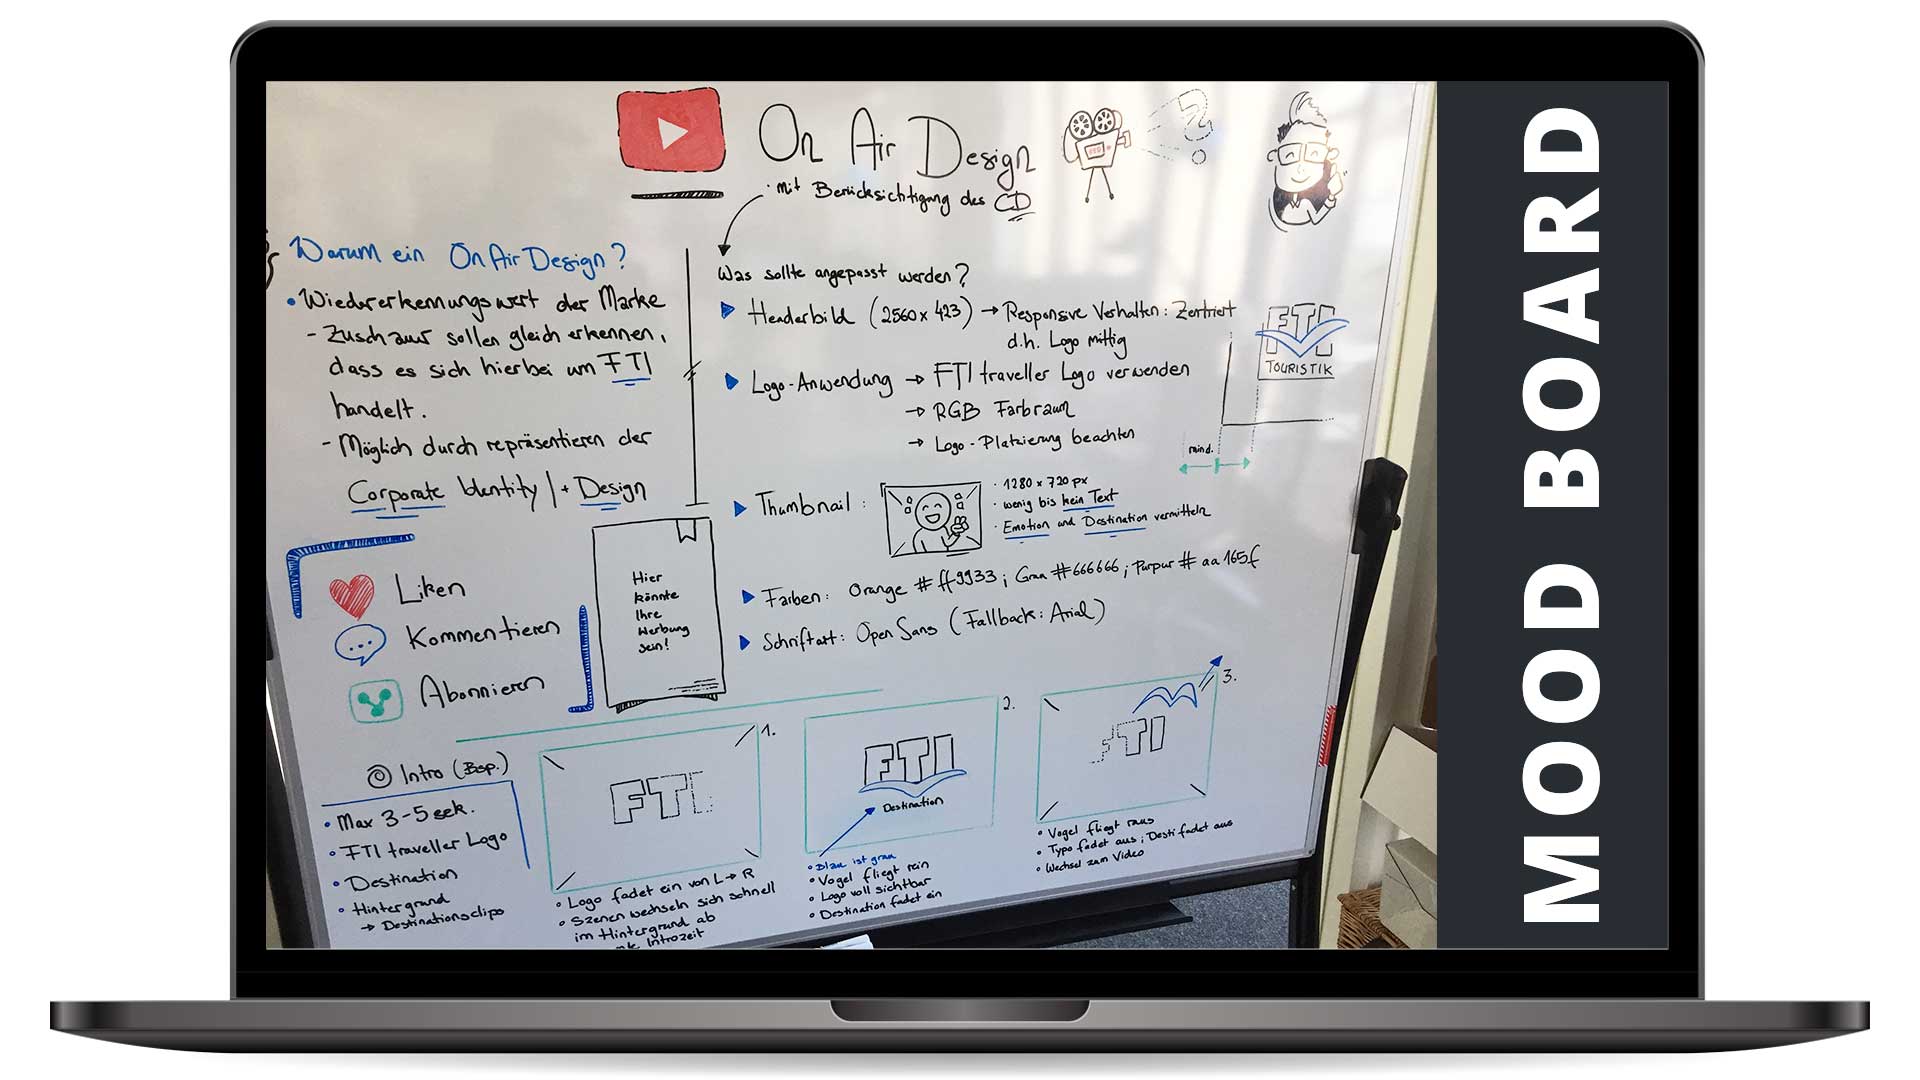 On Air Design
· mit Berücksichtigung des CD
Warum ein On Air Design?
• Wiedererkennungswert der Marke
- Zuschauer sollen gleich erkennen,
dass es sich hierbei um FTI
handelt.
- Möglich durch repräsentieren der
Corporate Identity | + Design
Liken
Kommentieren
Abonnieren
Hier
könnte
Ihre
Werbung
sein!
Was sollte angepasst werden?
Headerbild (2560 x 423) → Responsive Verhalten: Zentriert
d.h. Logo mittig
Logo-Anwendung → FTI traveller Logo verwenden
→ RGB Farbraum
→ Logo-Platzierung beachten
FTI
TOURISTIK
mind.
Thumbnail :
· 1280 x 720 px
· wenig bis kein Text
· Emotion und Destination vermitteln
Farben: Orange #ff9933; Grau #666666; Purpur #aa165f
Schriftart: Open Sans (Fallback: Arial)
Intro (Bsp.)
• Max 3-5 sek.
• FTI traveller Logo
• Destination
• Hintergrund
→ Destinationsclips
1.
FTI
• Logo fadet ein von L→R
• Szenen wechseln sich schnell
im Hintergrund ab
Introzeit
2.
FTI
Destination
• Blau ist grau
• Vogel fliegt rein
• Logo voll sichtbar
• Destination fadet ein
3.
FTI
• Vogel fliegt raus
• Typo fadet aus; Desti fadet aus
• Wechsel zum Video
MOOD BOARD